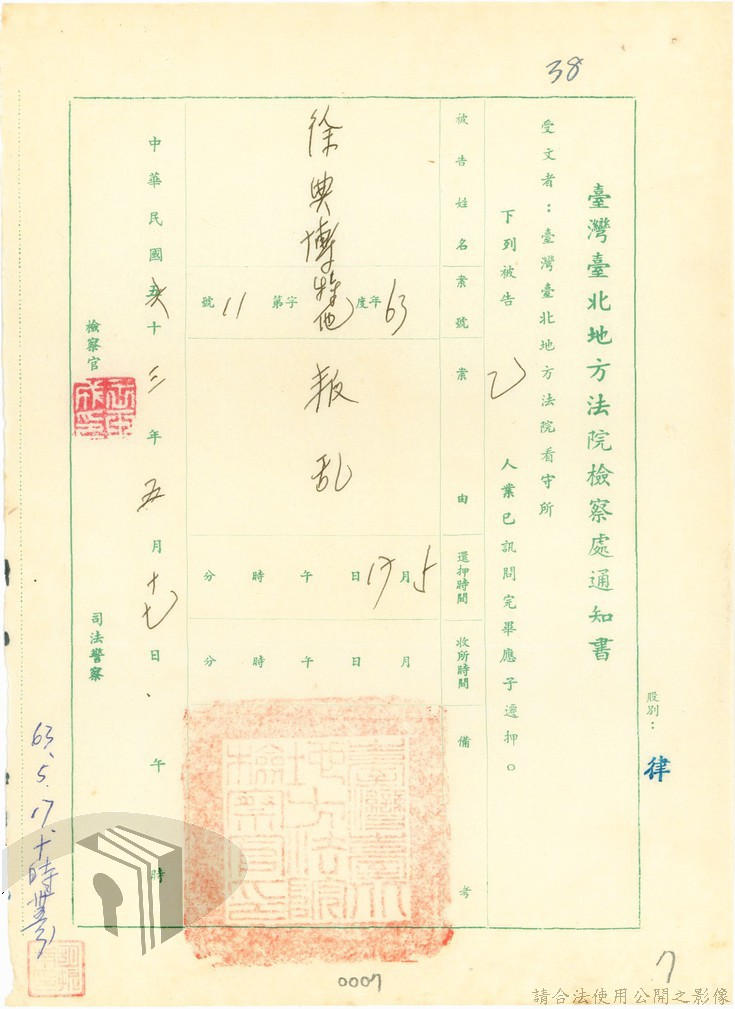 38
臺灣臺北地方法院檢察處通知書
股別：律
受文者：臺灣臺北地方法院看守所
下列被告 乙 人業已訊問完畢應予還押。
被告姓名
徐興博
案號
63年度 字第11號
案由
叛乱
還押時間
5月17日午時分
收所時間
月日午時分
備考
中華民國六十三年五月十七日 午 時
檢察官
司法警察
63.5.17.十時
7
0007
請合法使用公開之影像